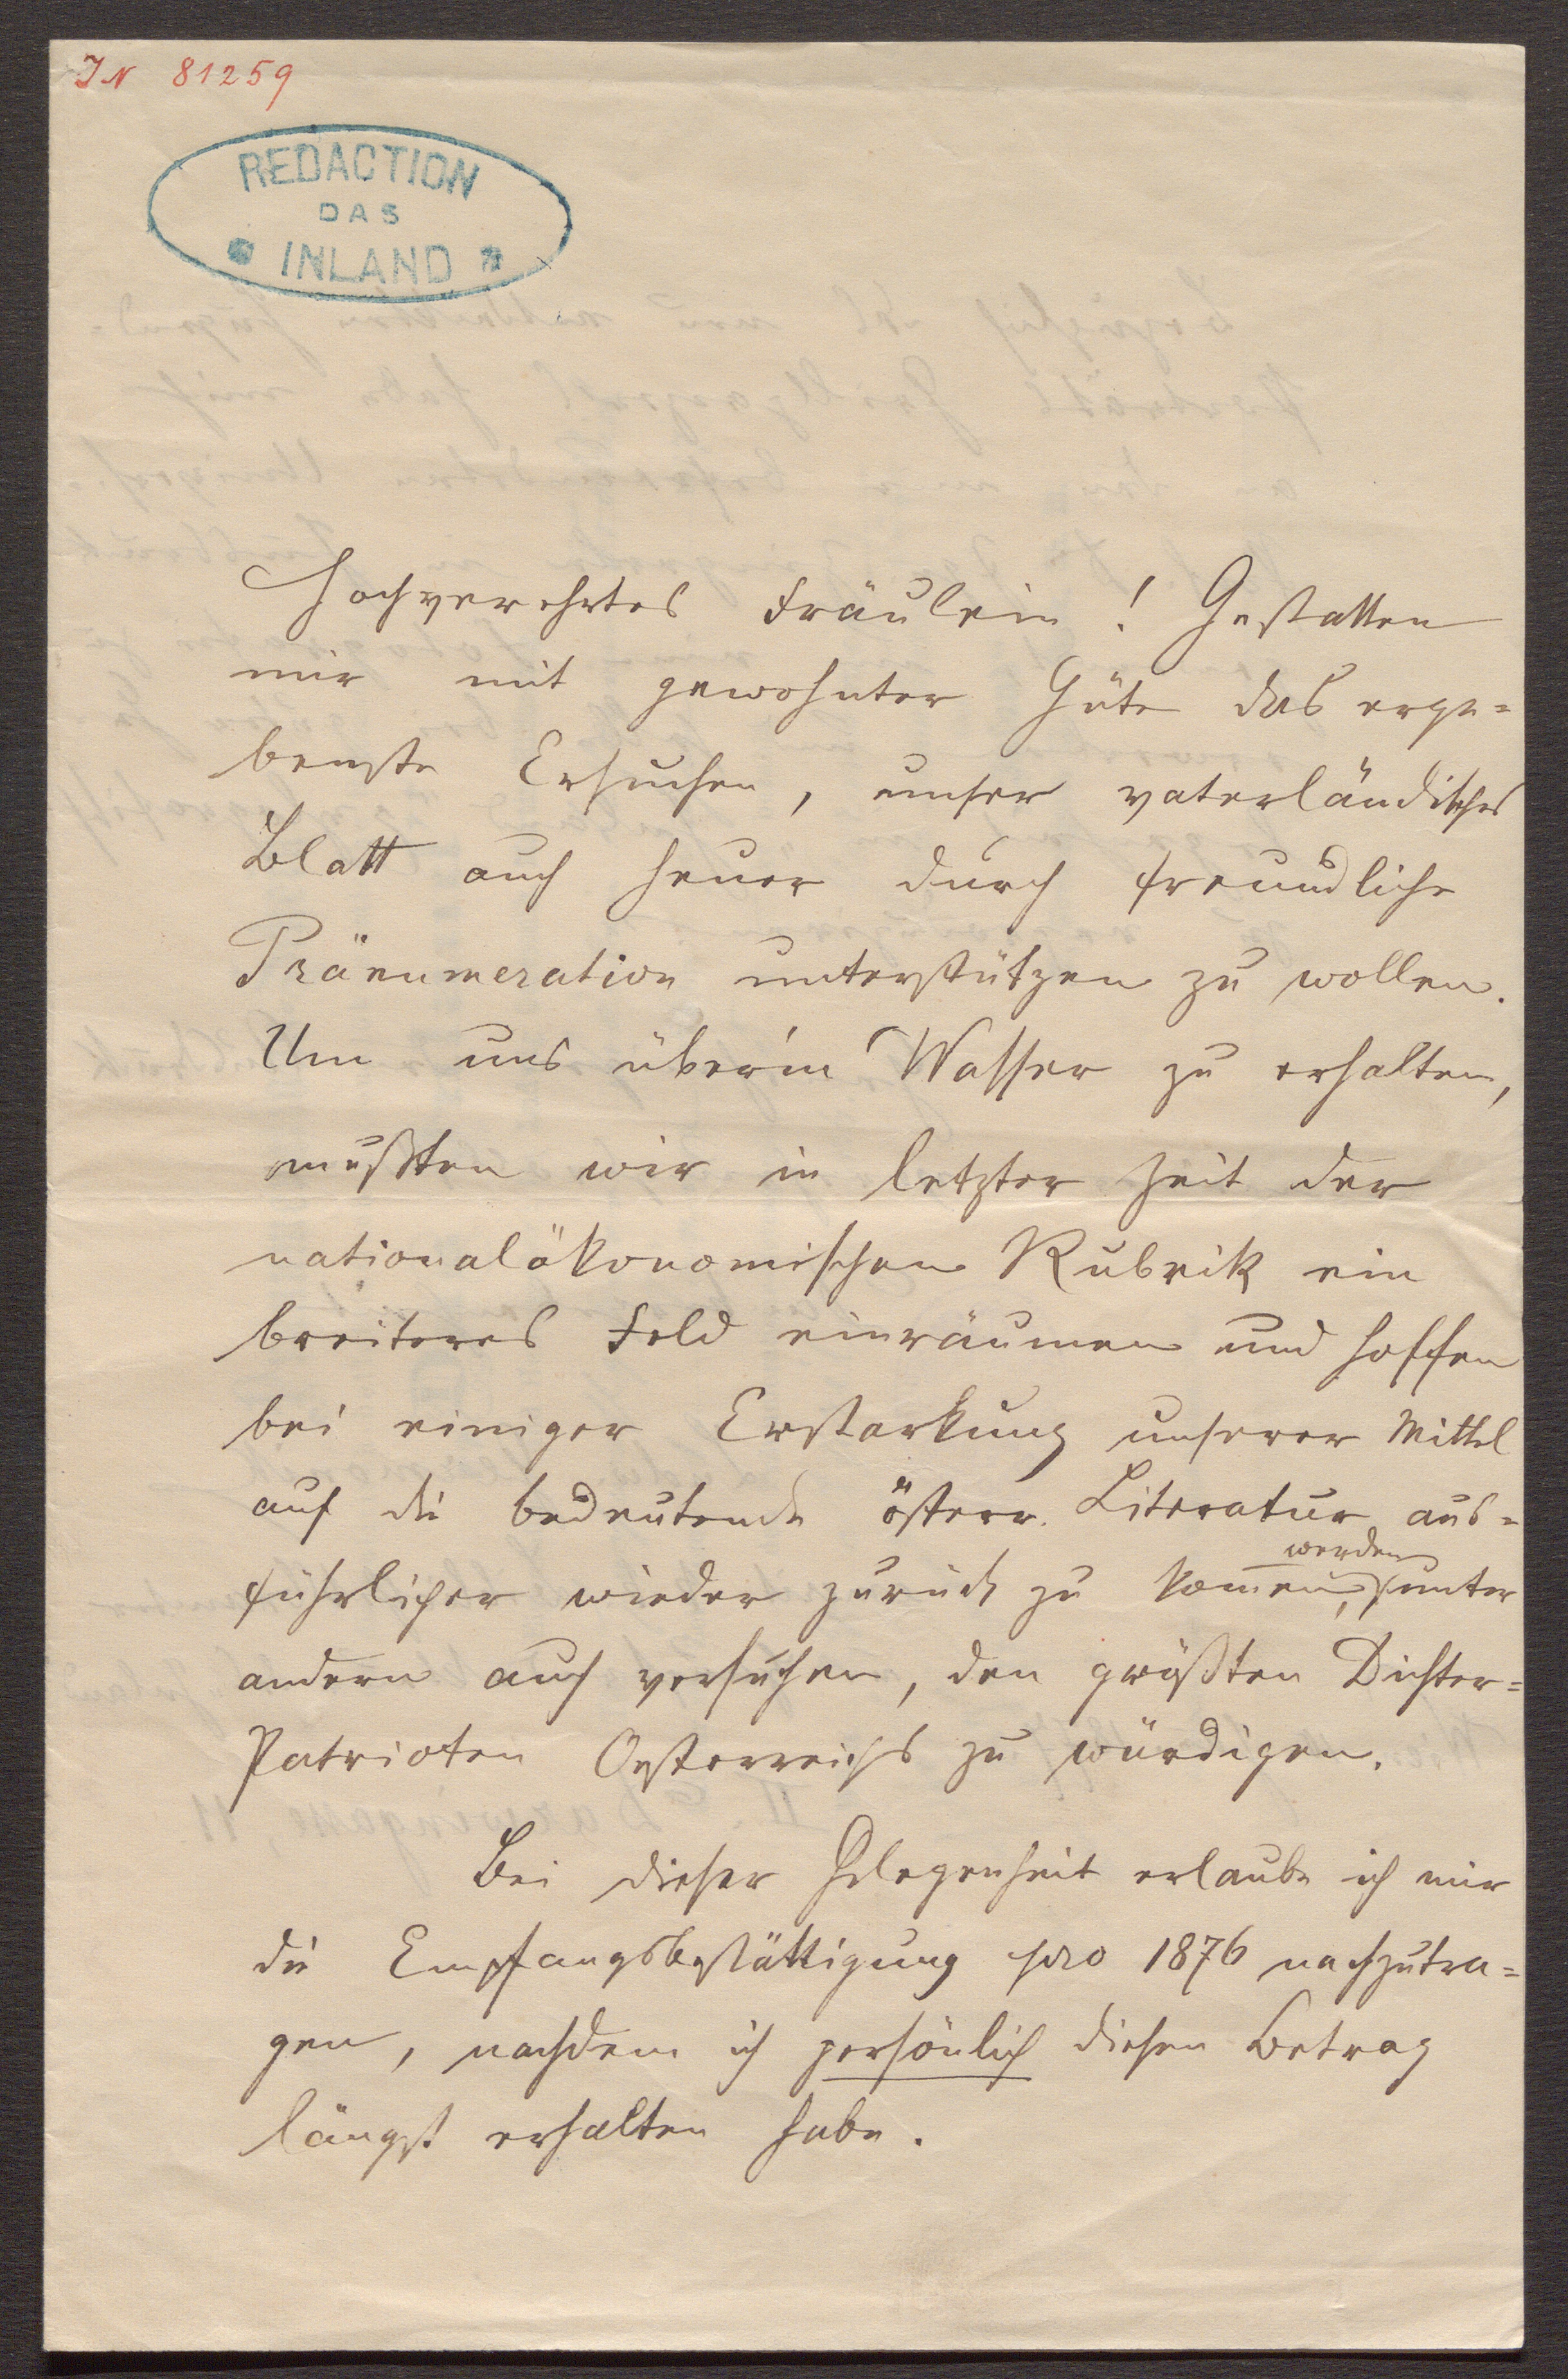 IN 81259
REDACTION
DAS
INLAND
Hochverehrtes Fräulein! Gestatten
mir mit gewohnter Güte das erge=
benste Ersuchen, unser vaterländisches
Blatt auch heuer durch freundliche
Pränumeration unterstützen zu wollen.
Um uns über'm Wasser zu erhalten,
mußten wir in letzter Zeit der
nationalökonomischen Rubrik ein
breiteres Feld einräumen und hoffen
bei einiger Erstarkung unserer Mittel
auf die bedeutende österr. Literatur aus=
werden
führlicher wieder zurück zu kom̅en, unter
andern auch versuchen, den größten Dichter=
Patrioten Oesterreichs zu würdigen.
Bei dieser Gelegenheit erlaube ich mir
die Empfangsbestättigung pro 1876 nachzutra=
gen, nachdem ich persönlich diesen Betrag
längst erhalten habe.